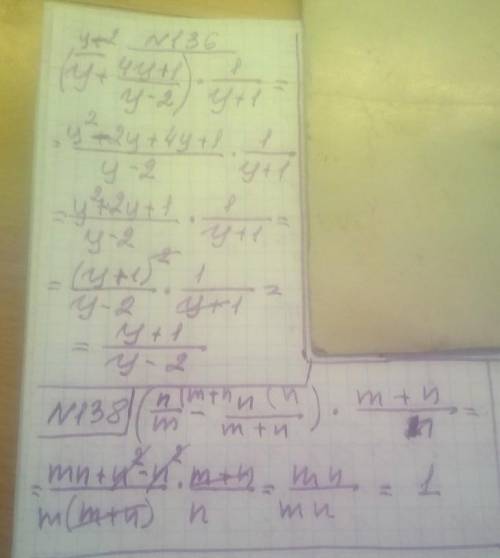 y-2 №136
(y + (4y+1)/(y-2)) · 1/(y+1) =
= (y²-2y+4y+1)/(y-2) · 1/(y+1)
= (y²+2y+1)/(y-2) · 1/(y+1) =
= (y+1)²/(y-2) · 1/(y+1) =
= (y+1)/(y-2)
№138 (n/m (m+n - n (n/(m+n) · (m+n)/n =
= (mn+n²-n²)/(m(m+n)) · (m+n)/n = mn/mn = 1